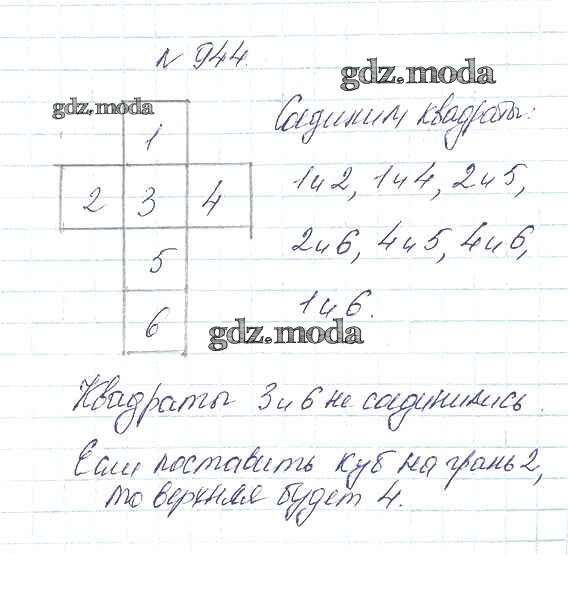 N 944
gdz.moda
gdz.moda
Соединим квадраты:
1
2 3 4
1 и 2, 1 и 4, 2 и 5,
5
2 и 6, 4 и 5, 4 и 6,
6
1 и 6.
gdz.moda
Квадраты 3 и 6 не соединились.
Если поставить куб на грань 2,
то верхняя будет 4.